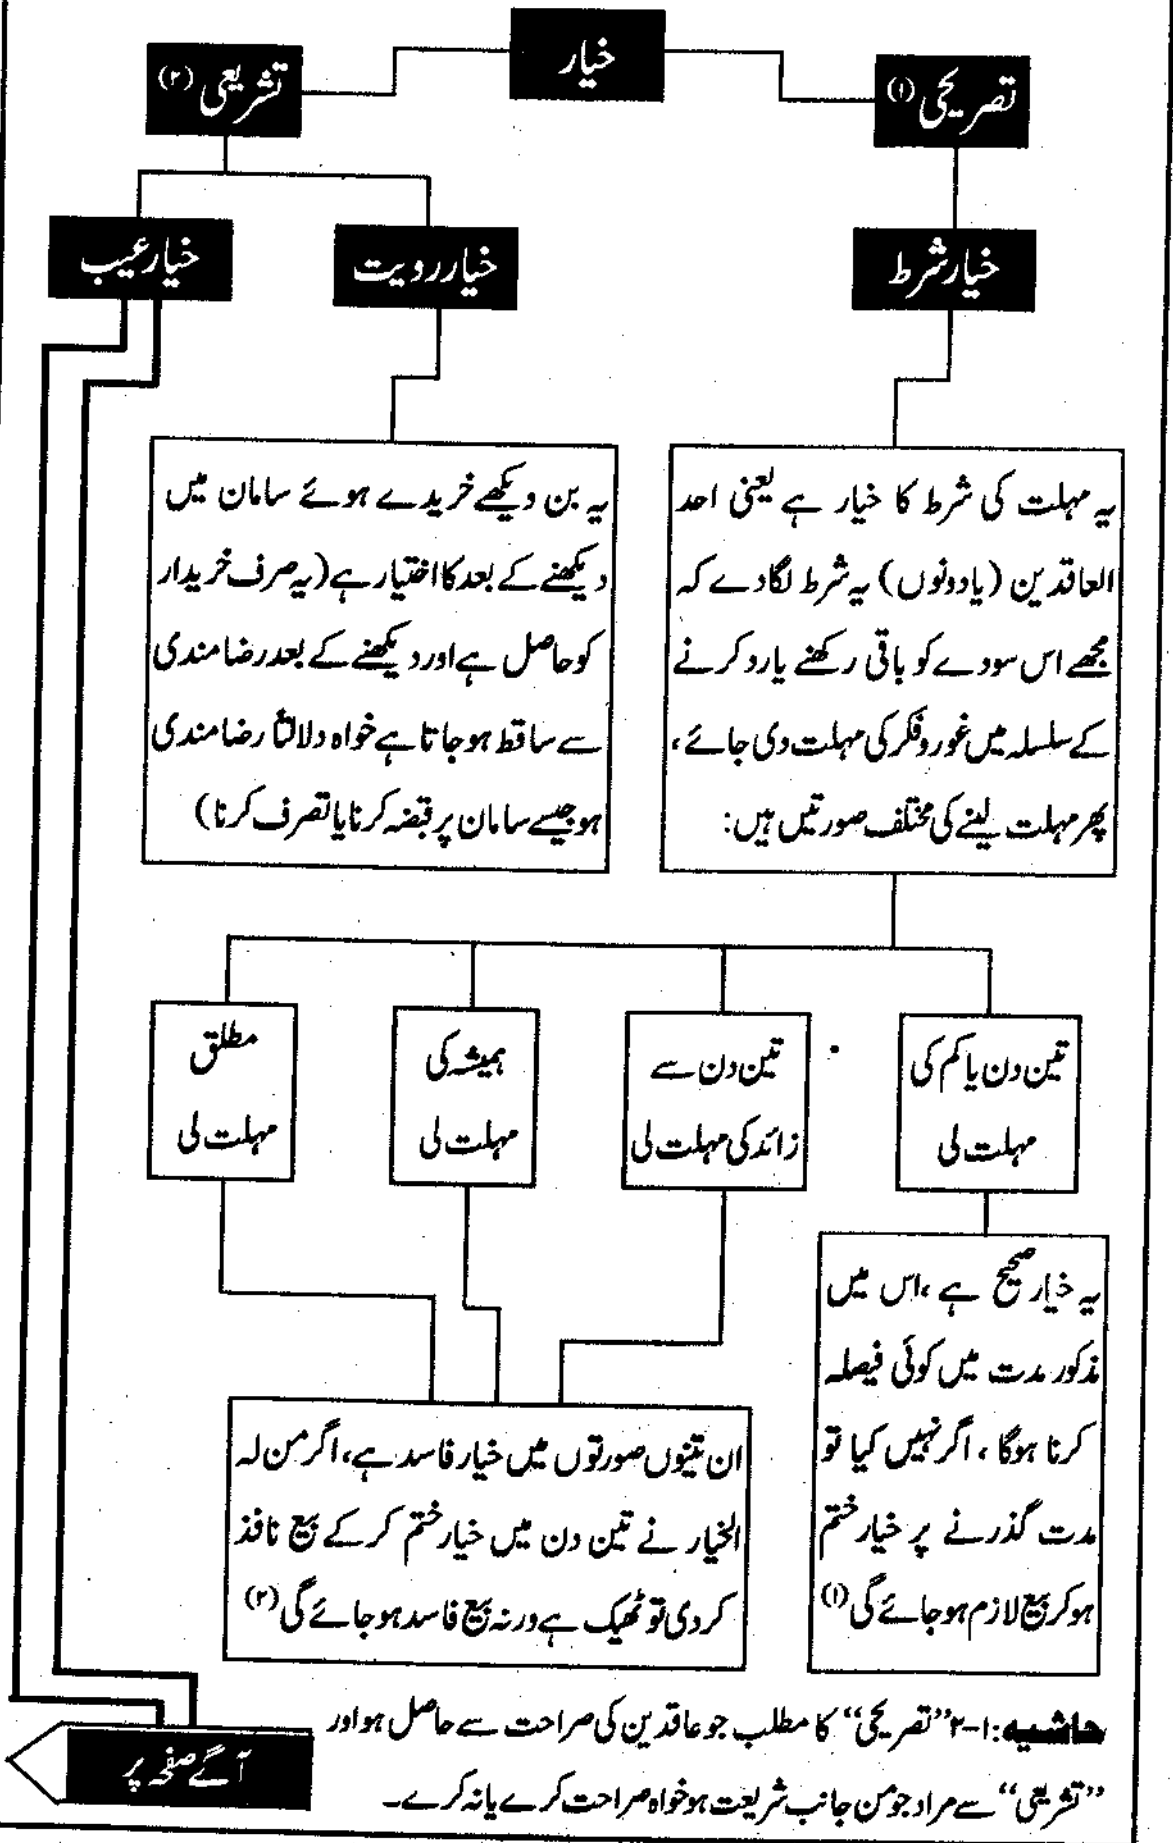 خیار
تصریحی (۱)
تشریعی (۲)
خیار شرط
خیار رویت
خیار عیب
یہ مہلت کی شرط کا خیار ہے یعنی احد
العاقدین (یا دونوں) یہ شرط لگادے کہ
مجھے اس سودے کو باقی رکھنے یا رد کرنے
کے سلسلہ میں غور و فکر کی مہلت دی جائے،
پھر مہلت لینے کی مختلف صورتیں ہیں:
یہ بن دیکھے خریدے ہوئے سامان میں
دیکھنے کے بعد کا اختیار ہے (یہ صرف خریدار
کو حاصل ہے اور دیکھنے کے بعد رضامندی
سے ساقط ہو جاتا ہے خواہ دلالتاً رضامندی
ہو جیسے سامان پر قبضہ کرنا یا تصرف کرنا)
تین دن یا کم کی
مہلت لی
تین دن سے
زائد کی مہلت لی
ہمیشہ کی
مہلت لی
مطلق
مہلت لی
یہ خیار صحیح ہے، اس میں
مذکور مدت میں کوئی فیصلہ
کرنا ہوگا، اگر نہیں کیا تو
مدت گذرنے پر خیار ختم
ہو کر بیع لازم ہو جائے گی (۱)
ان تینوں صورتوں میں خیار فاسد ہے، اگر من لہ
الخیار نے تین دن میں خیار ختم کر کے بیع نافذ
کر دی تو ٹھیک ہے ورنہ بیع فاسد ہو جائے گی (۲)
حاشیہ: ۱-۲ "تصریحی" کا مطلب جو عاقدین کی صراحت سے حاصل ہو اور
"تشریعی" سے مراد جو من جانب شریعت ہو خواہ صراحت کرے یا نہ کرے۔
آگے صفحہ پر